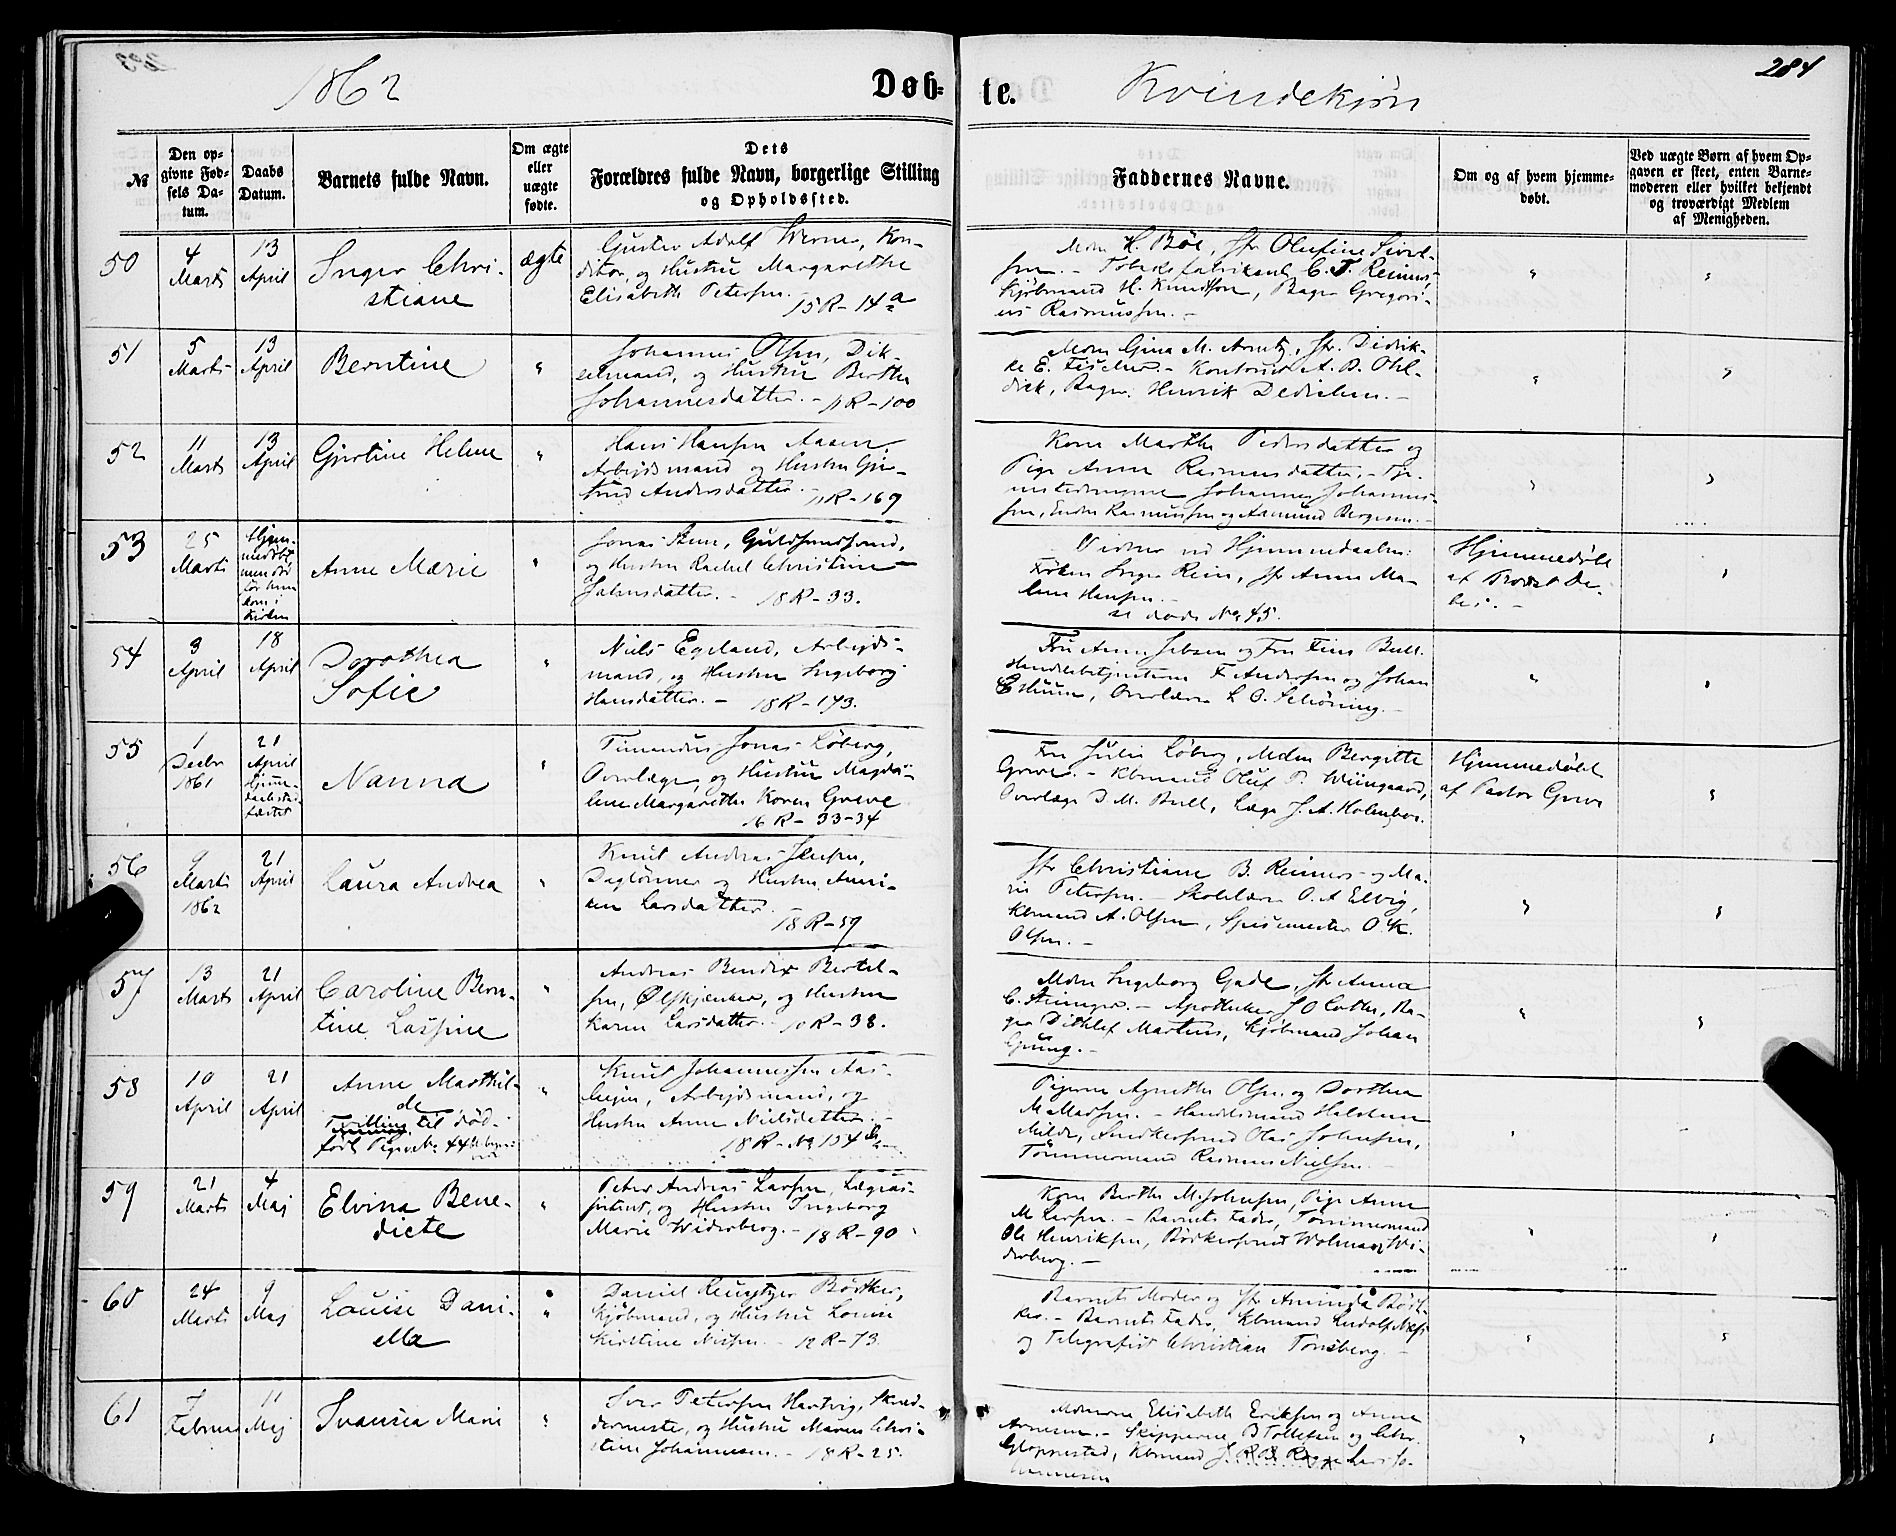 284
1862
Døb-
te.
Kvindekjøn
№
Den op-
givne Fød-
sels Da-
tum.
Daabs
Datum.
Barnets fulde Navn.
Om ægte
eller
uægte
fødte.
Dets
Forældres fulde Navn, borgerlige Stilling
og Opholdssted.
Faddernes Navne.
Om og af hvem hjemme-
døbt.
Ved uægte Børn af hvem Op-
gaven er skeet, enten Barne-
moderen eller hvilket bekjendt
og troværdigt Medlem
af Menigheden.
50
4
Marts
13
April
Inger Chri-
stiane
ægte
Gustav Adolf Werner, Kon-
ditor, og Hustru Margarethe
Elisabeth Petersen.
15 R - 14 a
Mdm H. Böe, Jfr Olufine Sivert-
sen. - Tobaksfabrikant C. T. Reimers,
Kjöbmand H. Knudsen, Bager Gregori-
us Rasmussen. -
51
5
Marts
13
April
Berntine
Johannes Olsen,
og Hustru Berthe
Johannesdatter. - 11 R - 100
Mdm Gina M. Arentz, Jfr. Didrik-
ke E. Fischer. - Kontorist A. B. Ohl-
dick, Bager Henrik Dedichen. -
52
11
Marts
13
April
Gjertine Helene
Hans Hansen Aasen,
Arbejdsmand og Hustru Gjer-
trud Andersdatter. -
11 R - 169
Kone Marthe Pedersdatter og
Pige Anne Rasmusdatter. - Tje-
nestedrengene Johannes Johannes-
sen, Endre Rasmussen og Aamund Bergesen. -
53
25
Marts
Hjem-
medöbt
men död
för hun
kom i
Kirken
Anne Marie
Jonas Steen, Guldsmedsvend,
og Hustru Rachel Christine
Johnsdatter. - 18 R - 33.
Vidner ved Hjemmedaaben:
Fröken Inger Rein, Jfr Anne Ma-
lene Hansen. -
se döde No 45.
Hjemmedöbt
af Provst De-
bes. -
54
3
April
18
April
Dorothea
Sofie
Niels Egeland, Arbejds-
mand, og Hustru Ingeborg
Hansdatter. - 18 R - 173.
Fru Anne Jebsen og Fru Fina Bull.
Handelsbetjentene F. Andersen og Johan
E Huun, Overlærer L. O. Schöning. -
55
1
Decbr
1861
21
April
Hjem-
daab stad-
fæstet
Nanna
Timandus Jonas Löberg,
Overlæge, og Hustru Magda-
lene Margarethe Koren Greve
16 R - 33-34
Fru Julie Löberg, Mdm Bergitte
Greve. - Kbmand Oluf P. Wiingaard,
Overlæge D. M. Bull, Læge J. A. Holmboe.
Hjemmedöbt
af Pastor Greve
56
9
Marts
1862
21
April
Laura Andrea
Knut Andreas Jensen,
Daglönner og Hustru Anne
Larsdatter.
18 R - 59
Jfr Christiane B. Reimers og Ma-
rie Petersen. - Skolelærer O. A Elvig,
Kbmand A. Olsen, Spisemester O. K.
Olsen. -
57
13
Marts
21
April
Caroline Bern-
tine Lassine
Andreas Bendix Bertel-
sen, Ölskjænker, og Hustru
Karen Larsdatter. - 10 R - 38.
Mdm Ingeborg Gade, Jfr Anna
C. - Apotheker J O Lothe, Ba-
ger Ditlef Martens, Kjöbmand Johan
Gjung. -
58
10
April
21
April
Anne Marthil-
de
Tvilling til död-
födt Pige No 44
Knut Johannessen Aas-
heim, Arbejdsmand, og
Hustru Anne Nielsdatter. -
18 R - No 154 b
Pigerne Agnethe Olsen og Dorthea
M Madsen. - Handelsmand Halsten
Milde, Snedkersvend Olai Johnsen,
Tömmermand Rasmus Nielsen.
59
21
Marts
4
Maj
Elvina Bene-
dicte
Peter Andreas Larsen, Lægeas-
sistent, og Hustru Ingeborg
Marie Widerberg. - 18 R - 90
Kone Berthe M. Johnsen, Pige Anne
M Larsen. - Barnets Fader, Tömmermand
Ole Henriksen, Bödkersvend Wolmar Wi-
derberg. -
60
24
Marts
9
Maj
Louise Dani-
ella
Daniel Böstker,
Kjöbmand, og Hustru Louise
Kirstine Nissen. - 12 R - 73.
Barnets Moder og Jfr Aminda Böst-
ker. - Barnets Fader, Kbmand Ludolf
og Telegrafist Christian Tönsberg. -
61
7
Februar
11
Maj
Svansia Marie
Iver Petersen Hartvig, Skræd-
dermester, og Hustru Maren Chri-
stine Johannesen. - 18 R - 25.
Mdmerne Elisabeth Eriksen og Anna
Arnesen. - Skipperne B Tollefsen og Chr.
Gloppestad, Kbmand J. R.